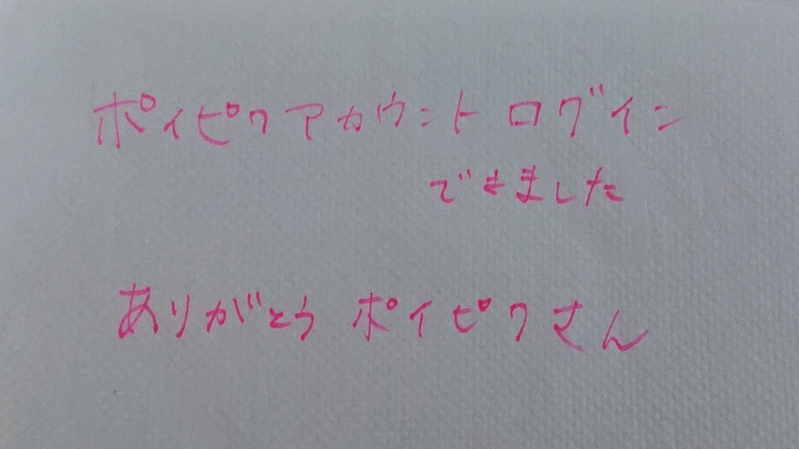 ポイピクアカウントログイン
できました
ありがとうポイピクさん